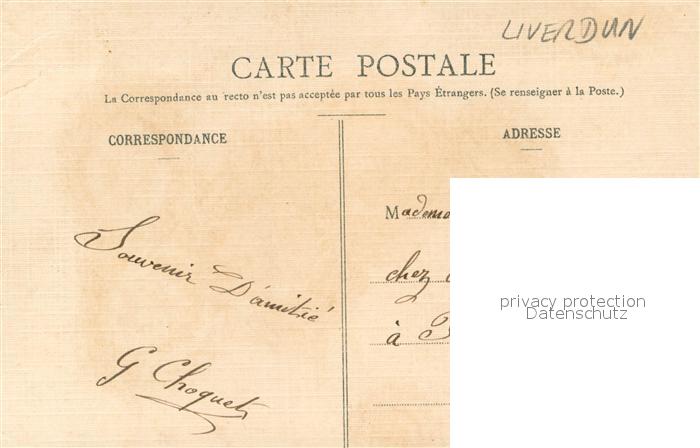 LIVERDUN
CARTE POSTALE
La Correspondance au recto n'est pas acceptée par tous les Pays Étrangers. (Se renseigner à la Poste.)
CORRESPONDANCE
ADRESSE
Souvenir D'amitié
G Choquet
Madem
chez
à
privacy protection
Datenschutz